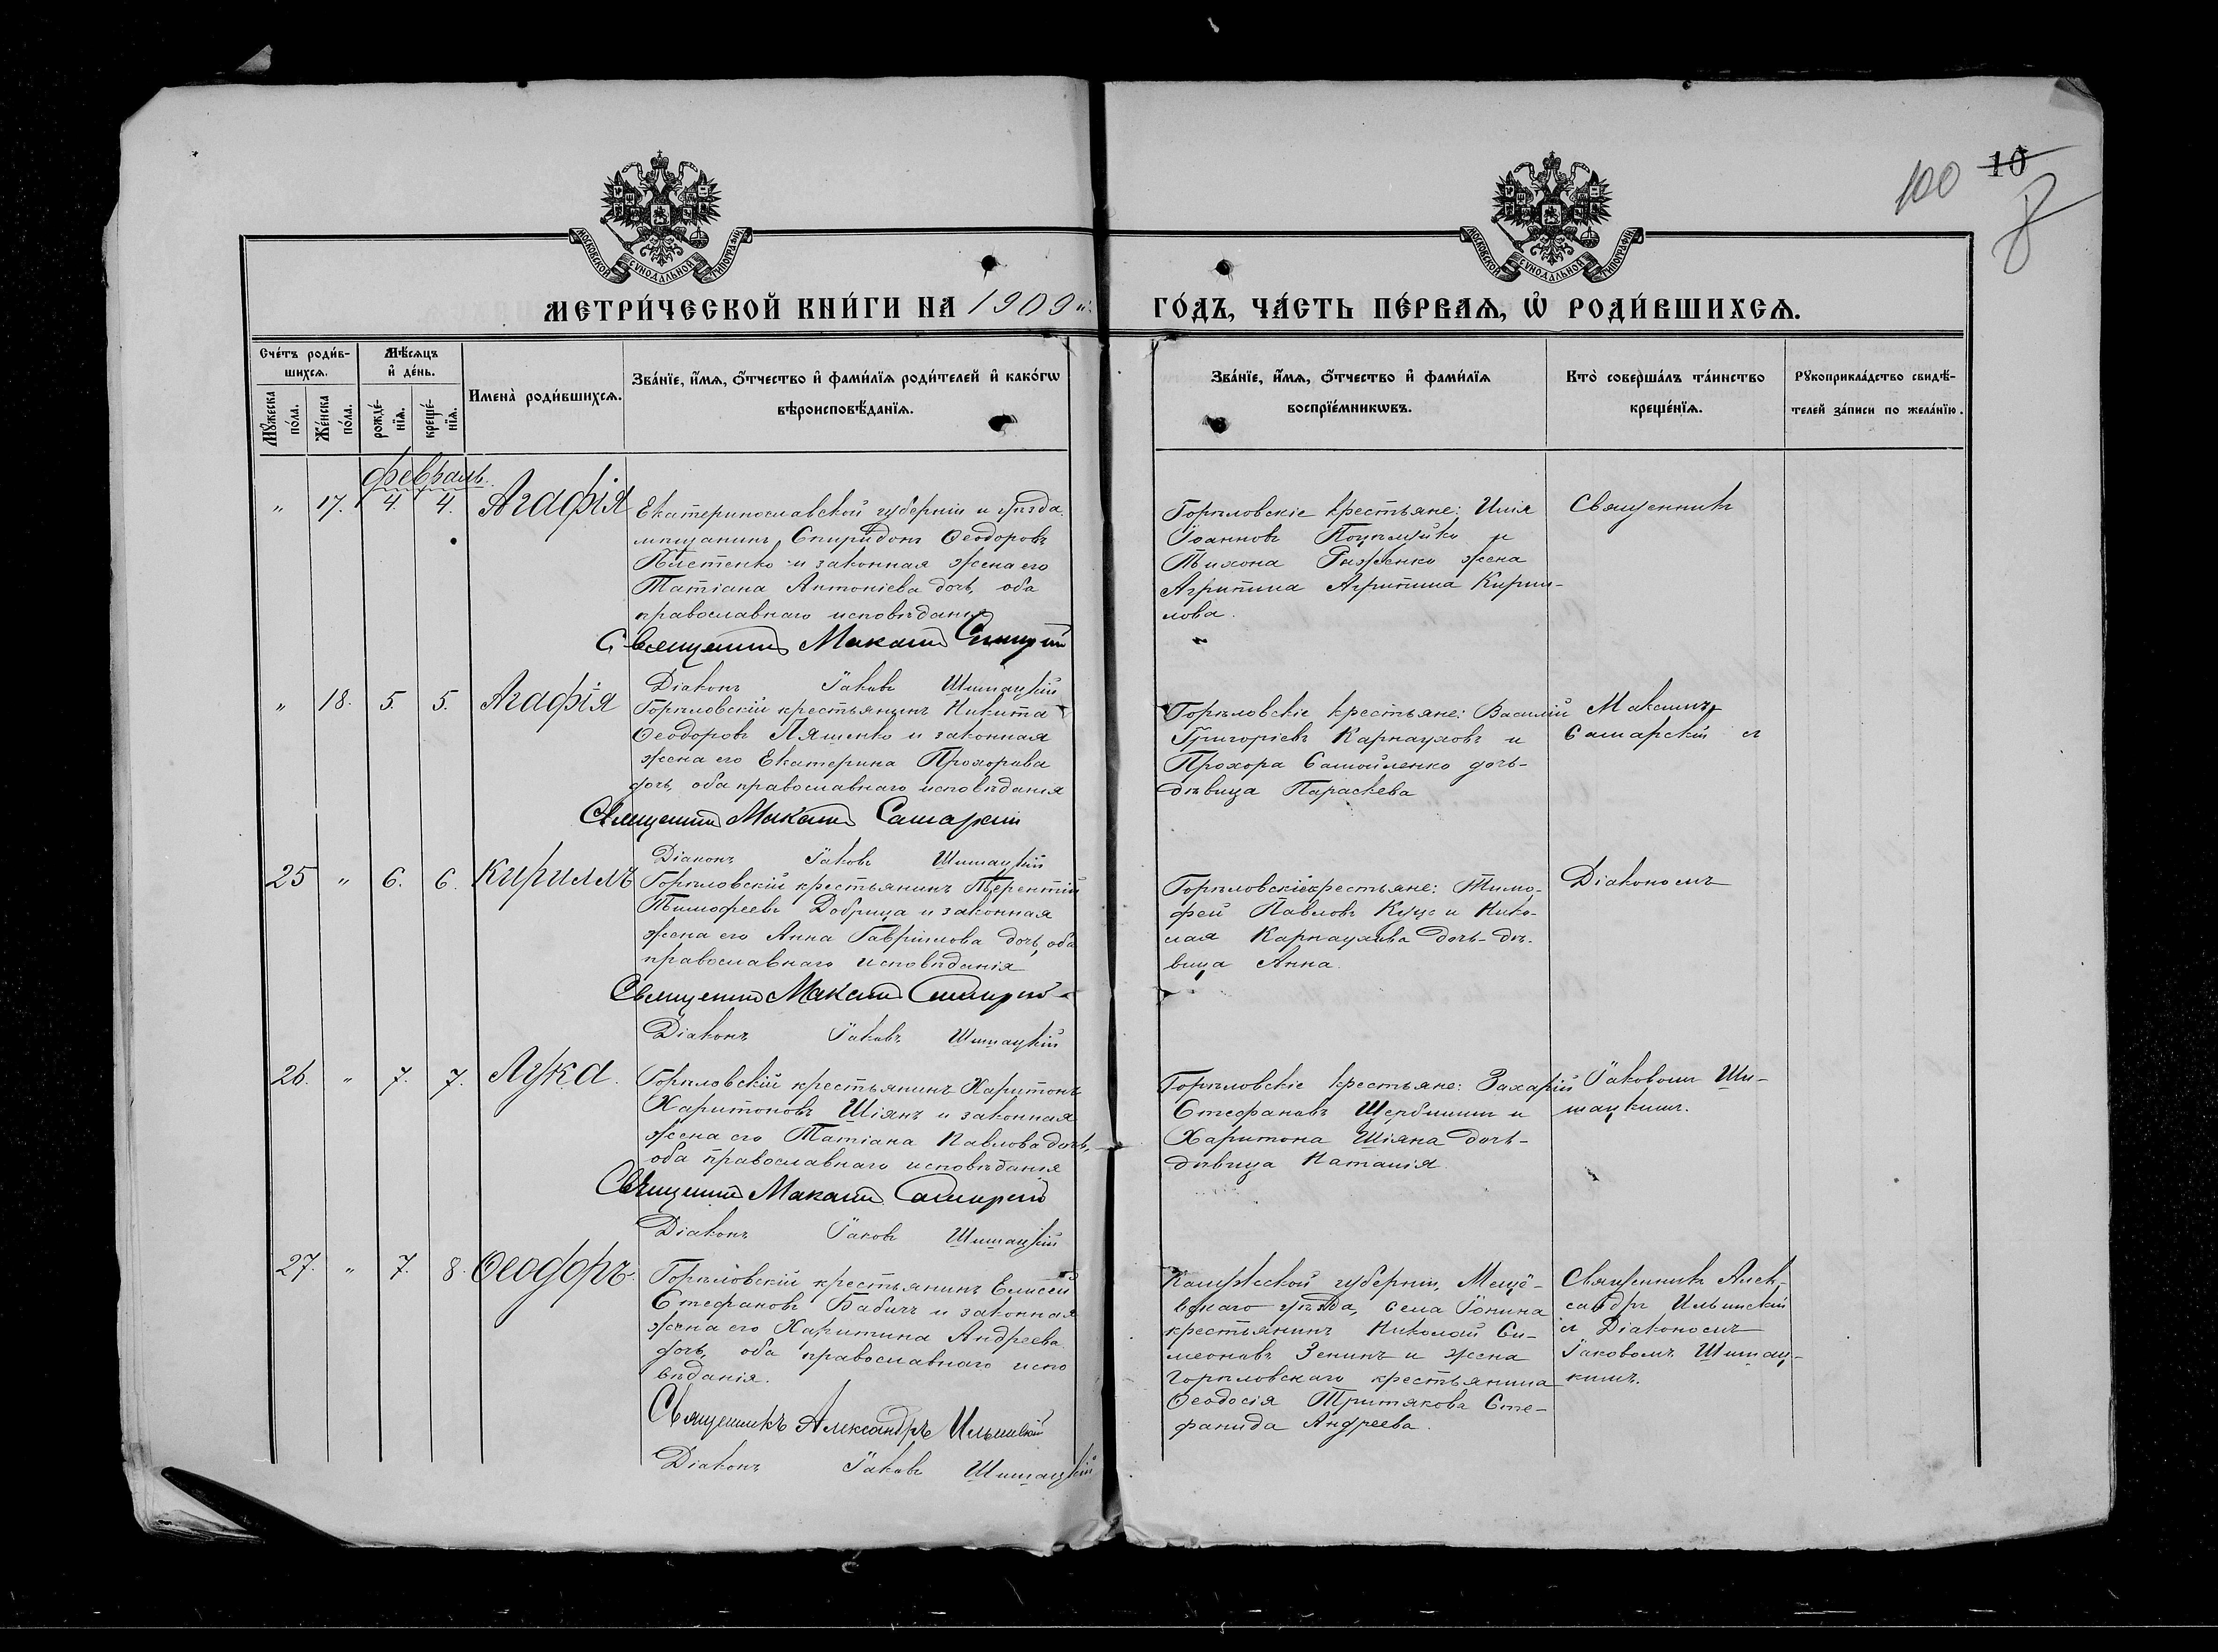 100 10
8
МОСКОВСКОЙ СУНОДАЛЬНОЙ ТИПОГРАФІИ
МОСКОВСКОЙ СУНОДАЛЬНОЙ ТИПОГРАФІИ
МЕТРИ́ЧЕСКОЙ КНИ́ГИ НА 1909 й:
ГО́ДЪ, ЧА́СТЬ ПЕ́РВАѦ, Ѽ РОДИ́ВШИХСѦ.
Сче́тъ роди́в-
шихсѧ.
Мѣ́сѧцъ
и҆ де́нь.
Мꙋ́жеска
по́ла.
Же́нска
по́ла.
рожде́-
нїѧ.
креще́-
нїѧ.
И҆мена̀ роди́вшихсѧ.
Зва́нїе, и҆́мѧ, ѻ҆́тчество и҆ фами́лїѧ роди́телей и҆ како́гѡ
вѣроисповѣ́данїѧ.
Зва́нїе, и҆́мѧ, ѻ҆́тчество и҆ фами́лїѧ
воспрїе́мникѡвъ.
Кто̀ соверша́лъ та́инство
креще́нїѧ.
Рꙋкоприкла́дство свидѣ́-
телей за́писи по жела́нїю.
февраль.
" 17. 4. 4. Агафія
Екатеринославской губерніи и уѣзда
мѣщанинъ Спиридонъ Ѳеодоровъ
и законная жена его
Татіана Антоніева дочь, оба
православнаго исповѣданія
Священникъ Максимъ Самарскій
Діаконъ Іаковъ Шишацкій
Горѣловскіе крестьяне: Илія
Іоанновъ и
Тихона жена
Агрипина Агрипина Кирил-
лова.
Священникъ
" 18. 5. 5. Агафія
Горѣловскій крестьянинъ Никита
Ѳеодоровъ Ляшенко и законная
жена его Екатерина Прохорова
дочь, оба православнаго исповѣданія
Священникъ Максимъ Самарскій
Діаконъ Іаковъ Шишацкій
Горѣловскіе крестьяне: Василій
Григоріевъ Карнауховъ и
Прохора Самойленко дочь-
дѣвица Параскева
Максимъ
Самарскій съ
25 " 6. 6. Кириллъ
Горѣловскій крестьянинъ Терентій
Тимофеевъ Добрица и законная
жена его Анна Гавріилова дочь, оба
православнаго исповѣданія
Священникъ Максимъ Самарскій
Діаконъ Іаковъ Шишацкій
Горѣловскіе крестьяне: Тимо-
фей Павловъ Куцъ и Нико-
лая Карнаухова дочь-дѣ-
вица Анна.
Діакономъ
26. " 7. 7. Лука.
Горѣловскій крестьянинъ Харитонъ
Харитоновъ Шіянъ и законная
жена его Татіана Павлова дочь,
оба православнаго исповѣданія
Священникъ Максимъ Самарскій
Діаконъ Іаковъ Шишацкій
Горѣловскіе крестьяне: Захарій
Стефановъ и
Харитона Шіяна дочь-
дѣвица Наталія.
Іаковомъ Ши-
шацкимъ.
27. " 7. 8. Ѳеодоръ.
Горѣловскій крестьянинъ Елисей
Стефановъ Бабичъ и законная
жена его Харитина Андреева
дочь, оба православнаго испо
вѣданія.
Священникъ Александръ Ильинскій
Діаконъ Іаковъ Шишацкій
Калужской губерніи, Мещо-
вскаго уѣзда, села Іонина
крестьянинъ Николай Си-
меоновъ Зенинъ и жена
Горѣловскаго крестьянина
Ѳеодосія Третякова Сте-
фанида Андреева.
Священникъ Алек-
сандръ Ильинскій
съ Діакономъ
Іаковомъ Шишац-
кимъ.